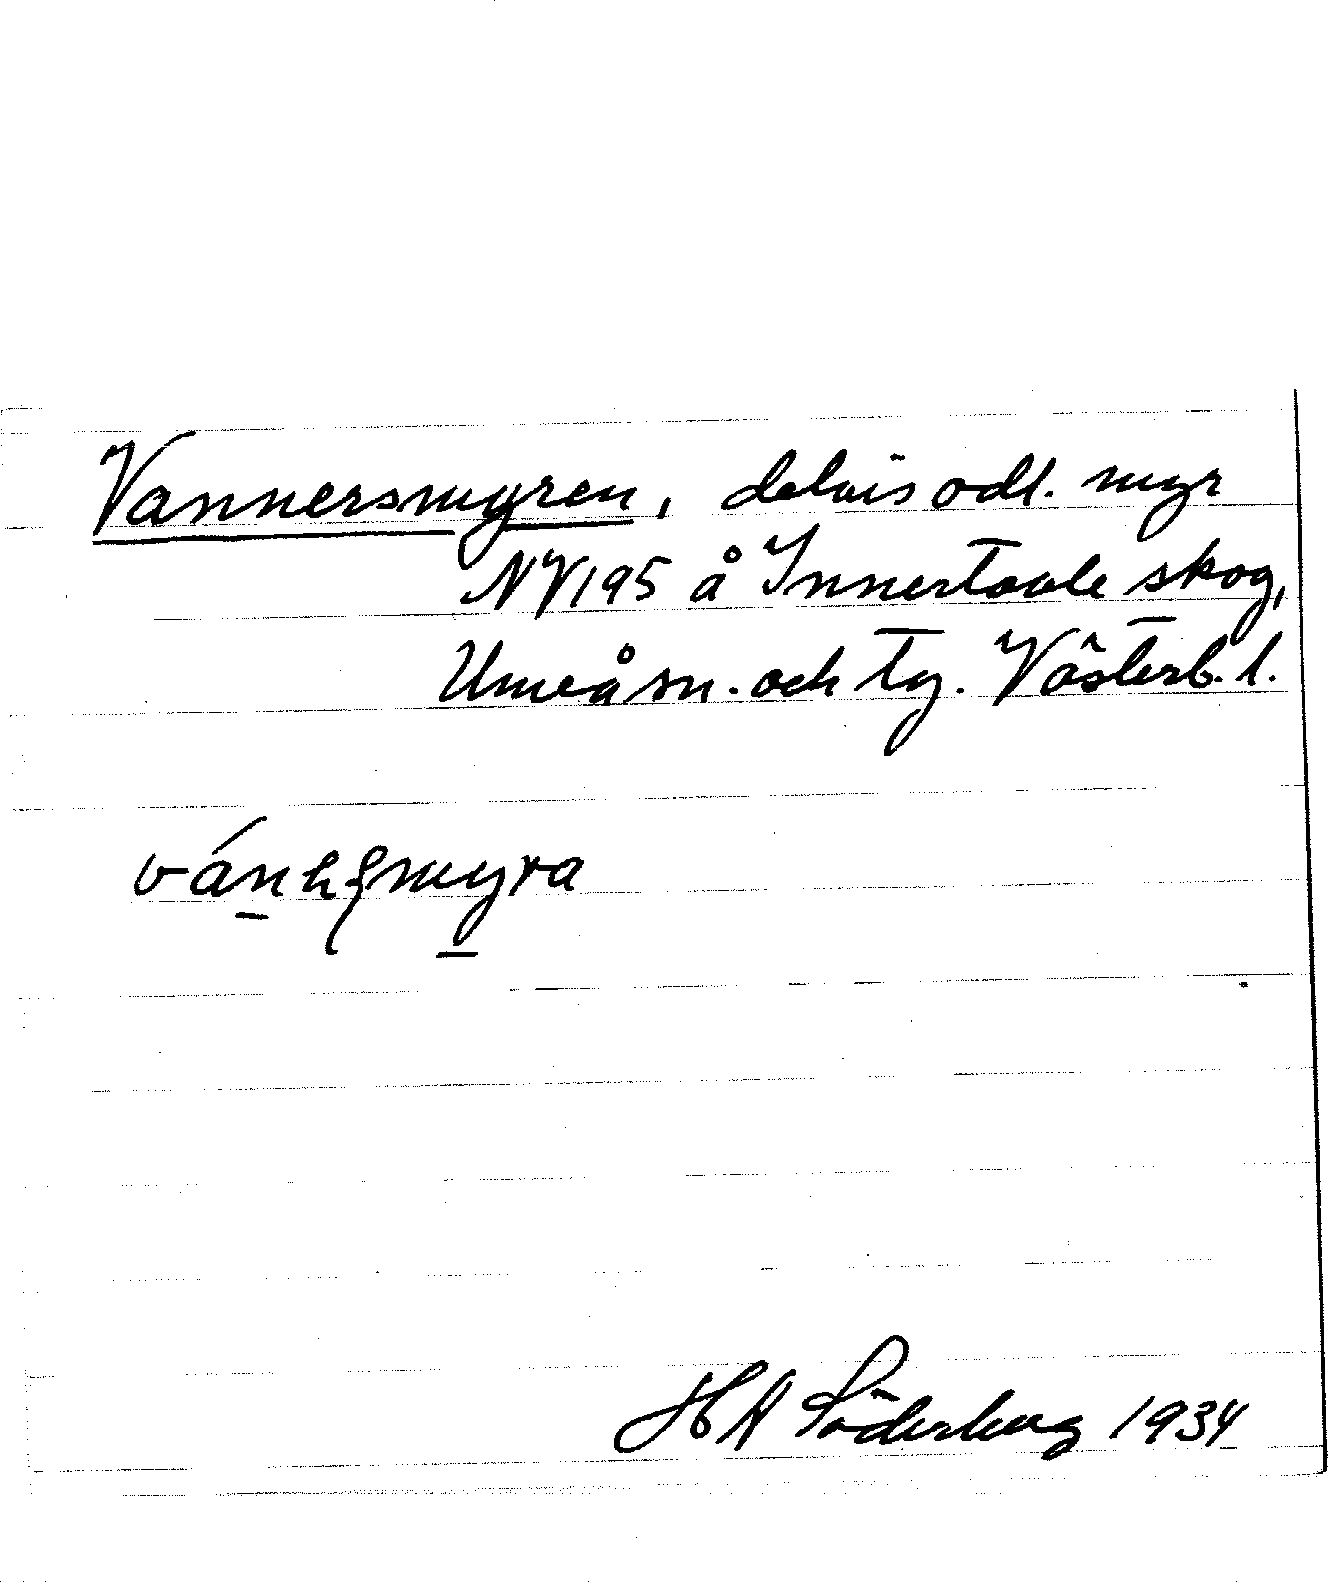 Vannersmyren, delvis odl. myr
NV195 å Innertavle skog,
Umeå sn. och tg. Västerb. l.
H A Söderberg 1934